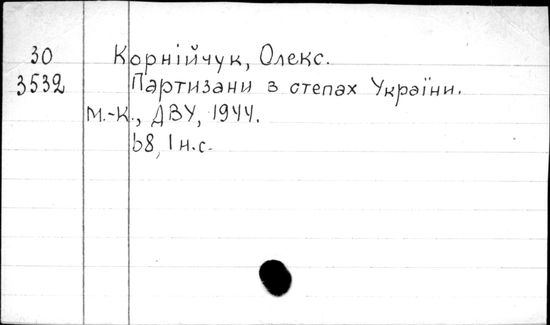 30 Корнійчук, Олекс.
3532 Партизани в степах України.
М.-К., ДВУ, 1944.
68, 1 н.с.